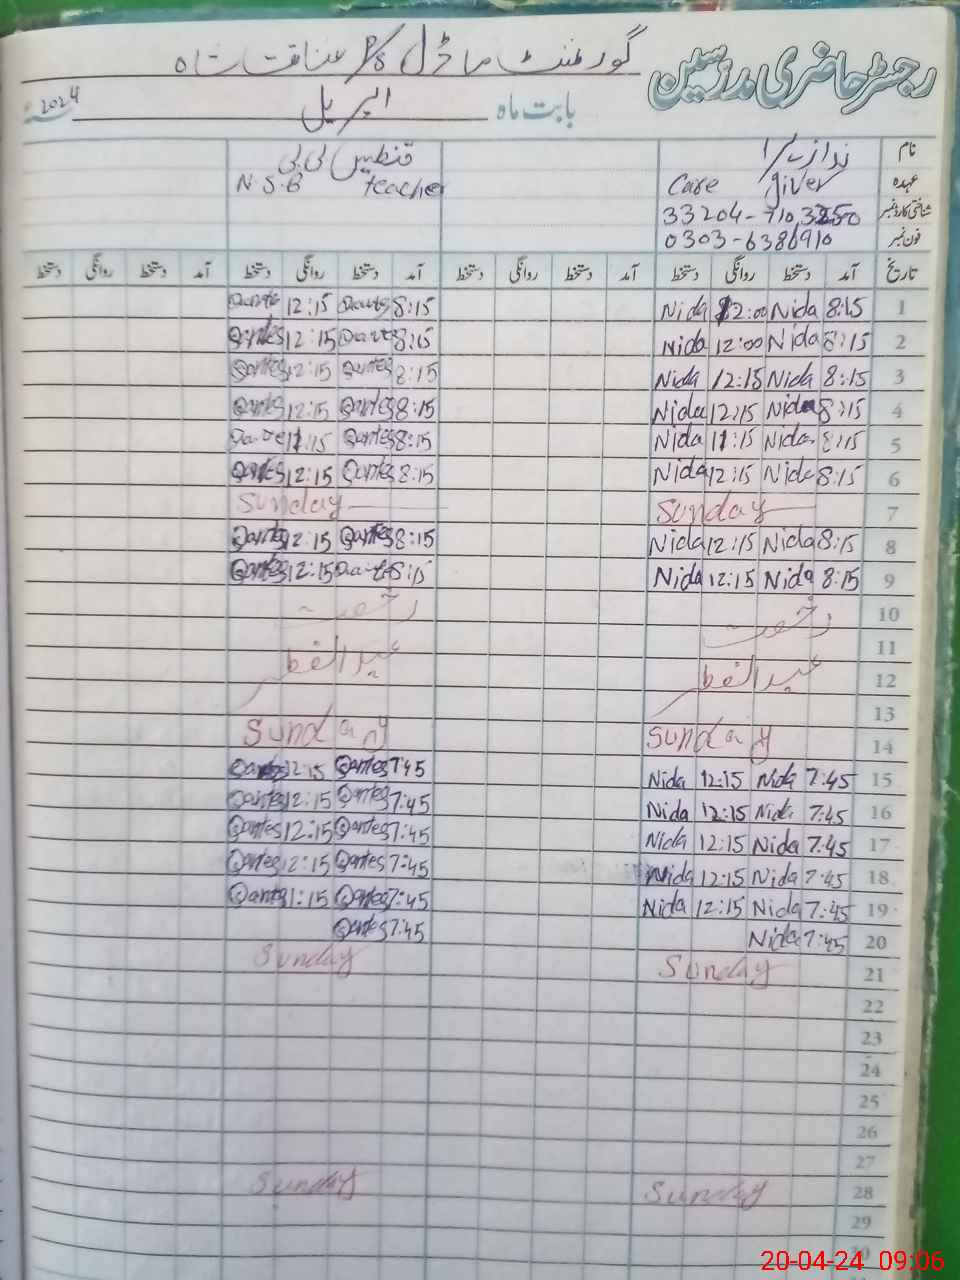 رجسٹر حاضری مدرسین
گورنمنٹ ماڈل P/S عنائت شاہ
بابت ماہ اپریل 2024ء
نام ندا زہرا قنطیس بی بی
عہدہ Care giver N.S.B teacher
شناختی کارڈ نمبر
فون نمبر 0303-6386910
تاریخ آمد دستخط روانگی دستخط آمد دستخط روانگی دستخط آمد دستخط روانگی دستخط آمد دستخط روانگی دستخط
1 8:15 Nida 12:00 Nida 8:15 12:15
2 8:15 Nida 12:00 Nida 8:15 12:15 Qantes
3 8:15 Nida 12:15 Nida 8:15 Qantes 12:15 Qantes
4 8:15 Nida 12:15 Nida 8:15 Qantes 12:15 Qantes
5 8:15 Nida 11:15 Nida 8:15 Qantes 11:15
6 8:15 Nida 12:15 Nida 8:15 Qantes 12:15 Qantes
7 Sunday Sunday
8 8:15 Nida 12:15 Nida 8:15 Qantes 12:15 Qantes
9 8:15 Nida 12:15 Nida 8:15 12:15 Qantes
10 رخصت رخصت
11
12 عید الفطر عید الفطر
13
14 Sunday Sunday
15 7:45 Nida 12:15 Nida 7:45 Qantes 12:15 Qantes
16 7:45 Nida 12:15 Nida 7:45 Qantes 12:15 Qantes
17 7:45 Nida 12:15 Nida 7:45 Qantes 12:15 Qantes
18 7:45 Nida 12:15 Nida 7:45 Qantes 12:15 Qantes
19 7:45 Nida 12:15 Nida 7:45 Qantes 1:15 Qantes
20 7:45 Nida 7:45 Qantes
21 Sunday Sunday
22
23
24
25
26
27
28 Sunday Sunday
29
20-04-24 09:06